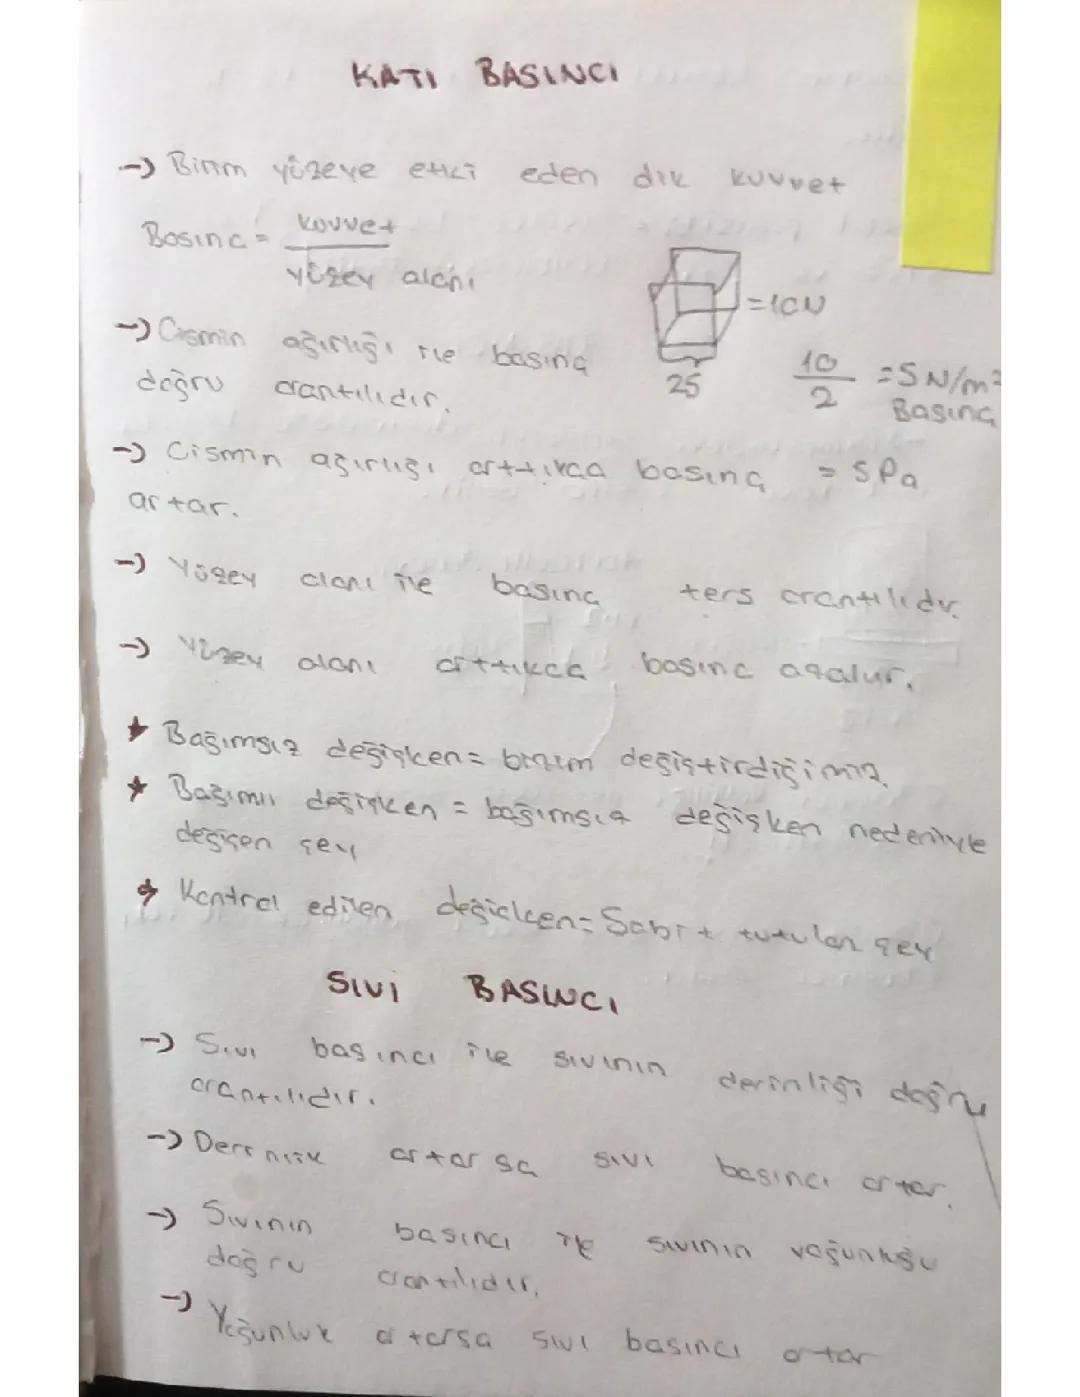 KATI BASINCI
→ Birim yüzeye etki eden dik kuvvet
Basınc = kuvvet
yüzey alanı
= 10N
→ Cismin ağırlığı ile basınç
doğru orantılıdır.
25
10
2
= 5 N/m²
Basınç
→ Cismin ağırlığı arttıkça basınç
artar.
= 5 Pa
→ Yüzey alanı ile basınç ters orantılıdır.
→ Yüzey alanı arttıkca basınc azalır.
★ Bağımsız değişken = bizim değiştirdiğimiz.
★ Bağımlı değişken = bağımsız değişken nedeniyle
değişen şey
★ Kontrol edilen değişken = Sabit tutulan şey
SIVI BASINCI
→ Sıvı basıncı ile sıvının derinliği doğru
orantılıdır.
→ Derinlik artarsa sıvı basıncı artar.
→ Sıvının basıncı ile sıvının yoğunluğu
doğru orantılıdır.
→ Yoğunluk artarsa sıvı basıncı artar